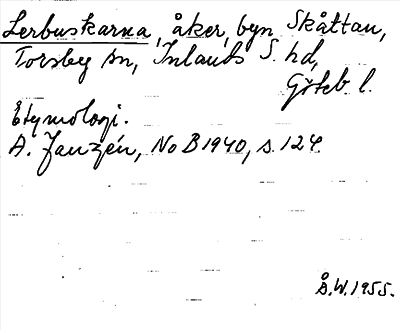 Lerbuskarna, åker, byn Skåttan,
Torsby sn, Inlands S. hd,
Göteb. l.
Etymologi.
A. Janzén, NoB 1940, s. 124.
Å.W. 1955.